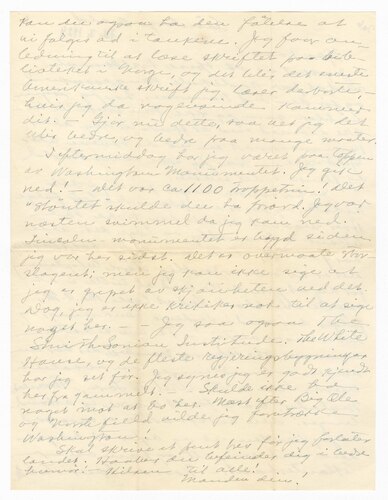 kan du ogsaa ha den følelse at
vi følges ad i tankene. Jeg faar an-
ledning til at læse skriftet paa bib-
lioteket i Norge, og det blir det eneste
Amerikanske skrift jeg læser derborte -
hvis jeg da nogensinde kommer
dit. - Gjør nu dette, saa at jeg det
blir bedre, og bedre paa mange maater.
I eftermiddag har jeg været paa toppen
av Washington Monumentet. Jeg gik
ned! - det var ca 1100 trappetrin! Det
skulde du ha gjort. Jeg var
næsten svimmel da jeg kom ned.
Lincoln monumentet er bygd siden
jeg var her sidst. Det er overmaate
slagent; men jeg kan ikke sige at
jeg er grepet av skjønheten ved det.
Dog, jeg er ikke kritiker nok til at sige
noget her. - - Jeg saa ogsaa The
Smithsonian Institute. The White
House, og de fleste regjeringsbygninger
har jeg set før. Jeg synes jeg er godt kjendt
her fra gammelt. - Skulde ikke ha
noget mot at bo her. Næst efter
og Northfield vilde jeg foretrække
Washington!
Skal skrive et brev før jeg forlater
landet. Haaber du befinder dig i bedste
- Hilsen til alle!
Manden din!